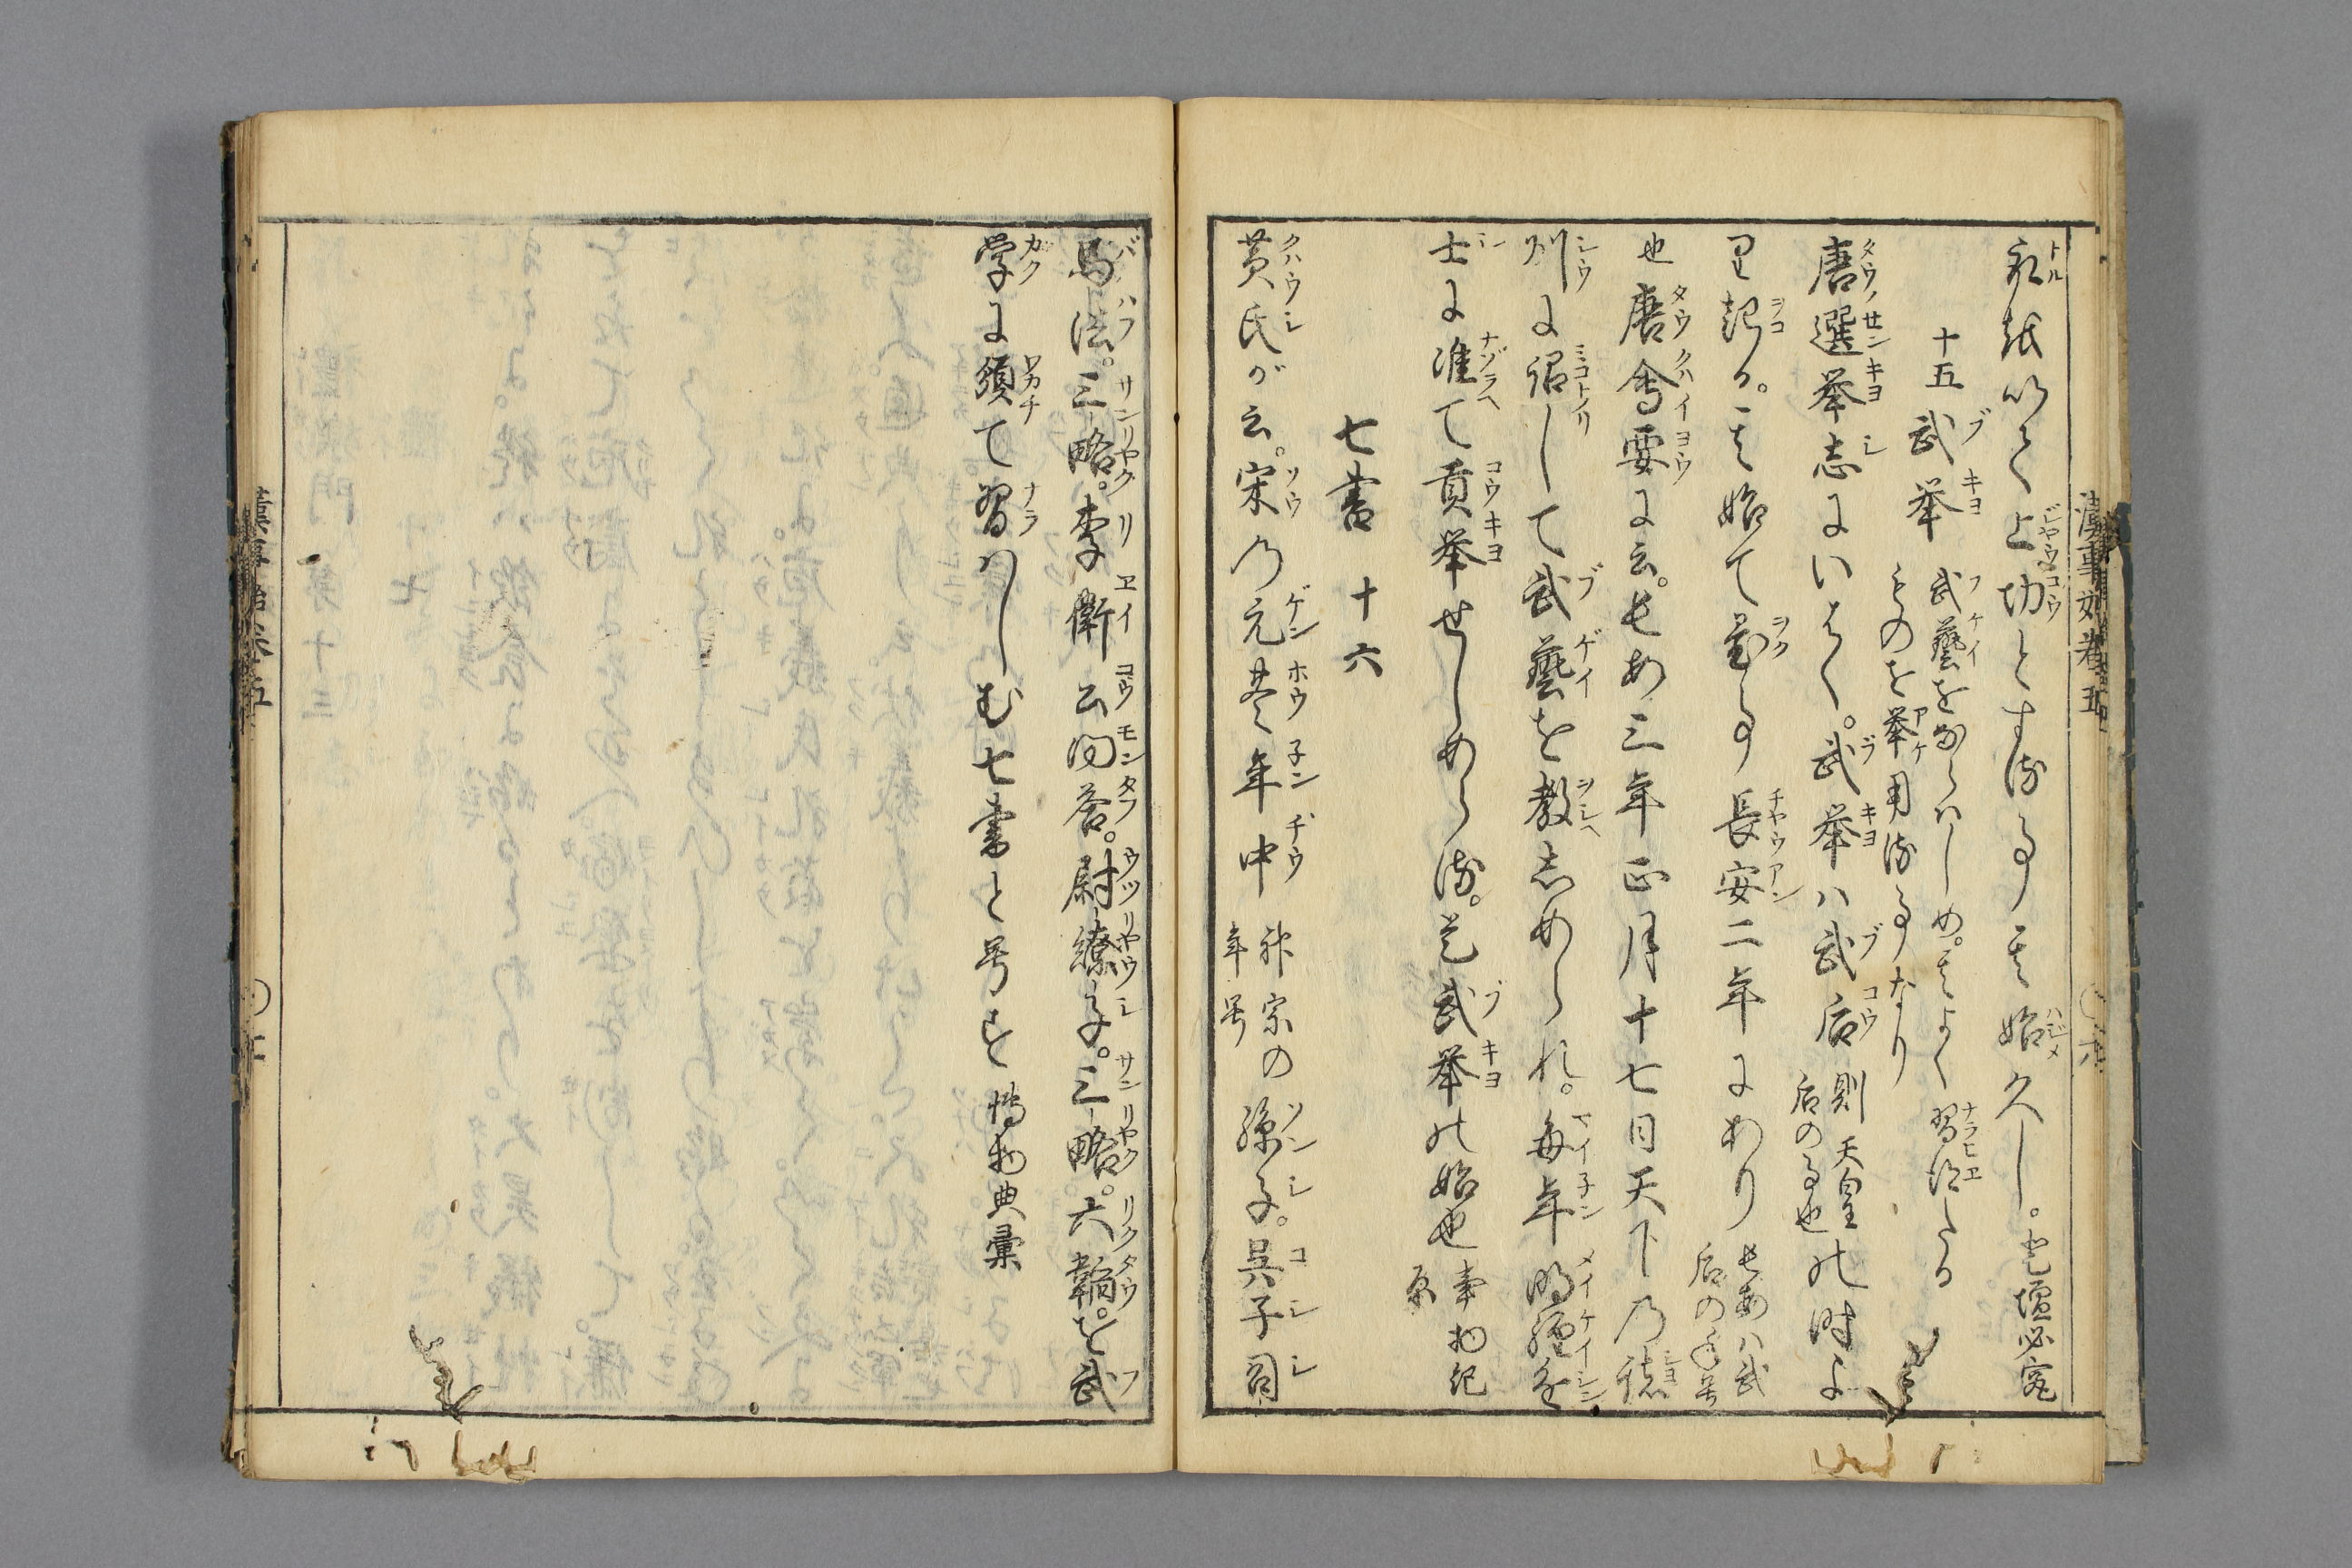 取紙以て上功とする事其始久し。老壚必究
十五 武挙 武藝をならハしめ。其よく習得たる
ものを挙用る事なり
唐選挙志にいはく。武挙ハ武后則天皇后の事也の時よ
り起る。其始て置事長安二年にあり長安ハ武后の年号
也唐會要に云。長安三年正月十七日天下乃諸
州に詔して武藝を教志められ。毎年明経進
士に准て貢挙せしめらる。是武挙の始也事物紀原
七書 十六
黄氏が云。宋乃元豊年中神宗の年号孫子。呉子司
馬法。三略。李衛公問答。尉繚子。三略。六韜。を武
学に頒て習ハしむ七書と号す 博物典彙